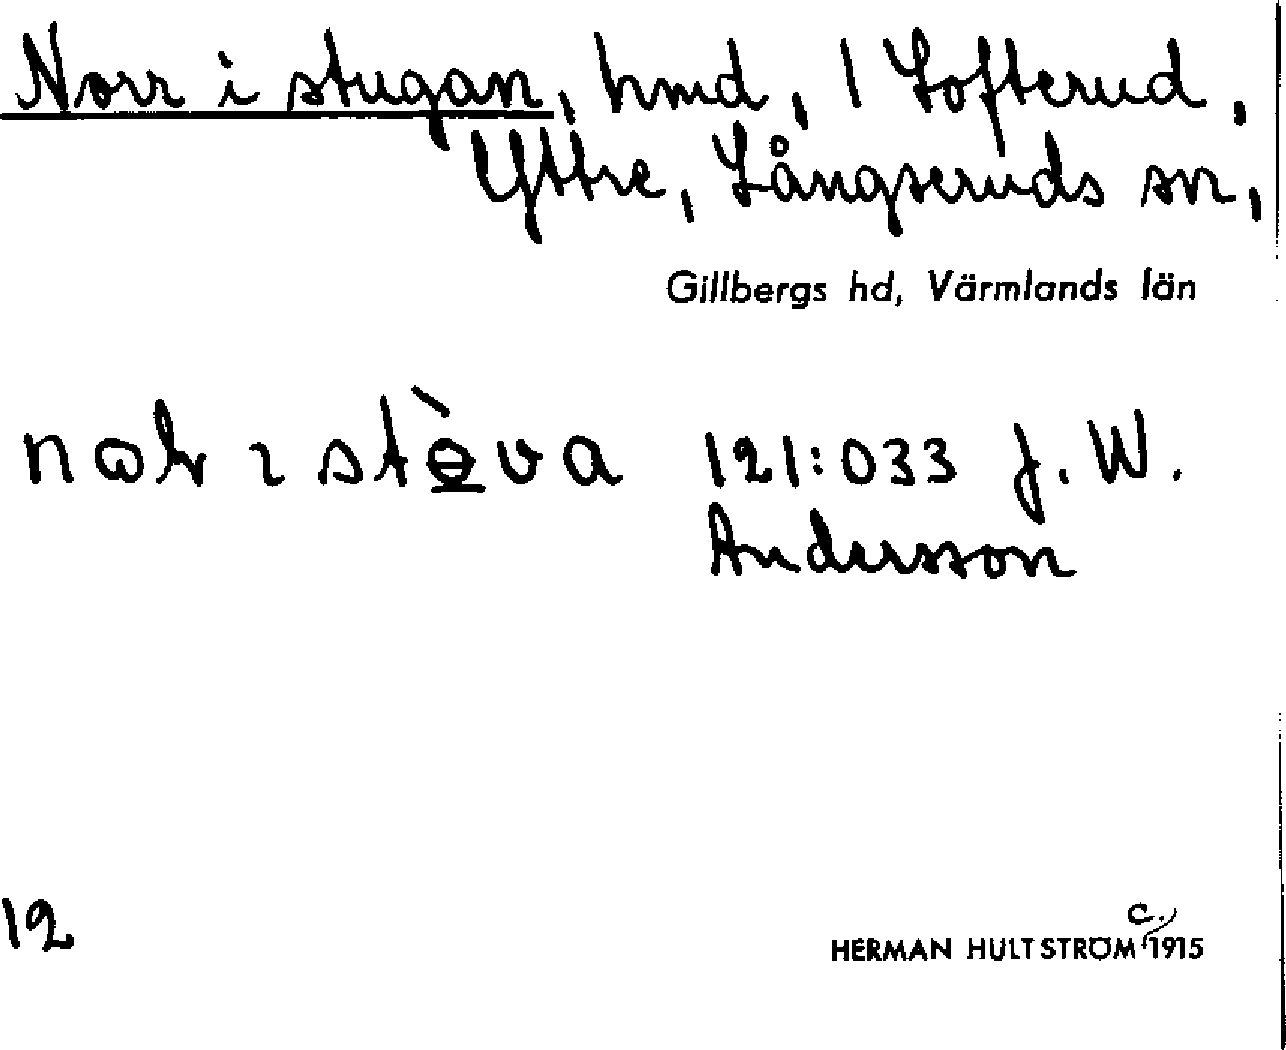 Norr i stugan, hmd, 1 Lofterud,
Yttre, Långseruds sn,
Gillbergs hd, Värmlands län
121:033 J. W.
Andersson
12
c.
HERMAN HULTSTRÖM 1915